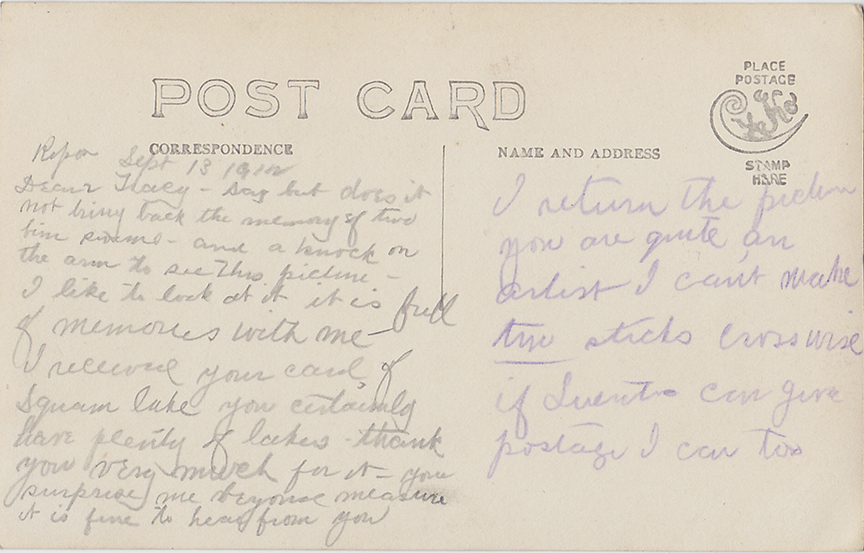 POST CARD
PLACE
POSTAGE
STAMP
HERE
CORRESPONDENCE
NAME AND ADDRESS
Ripon Sept 13 1912
Dear Tracy - Say but does it
not bring back the memory of two
- and a knock on
the arm to see this picture -
I like to look at it it is full
of memories with me -
I received your card of
Squam lake you certainly
have plenty of lakes - thank
you very much for it - you
surprise me beyond measure
it is fine to hear from you
I return the picture
you are quite an
artist I can't make
two sticks crosswise
if can give
postage I can too